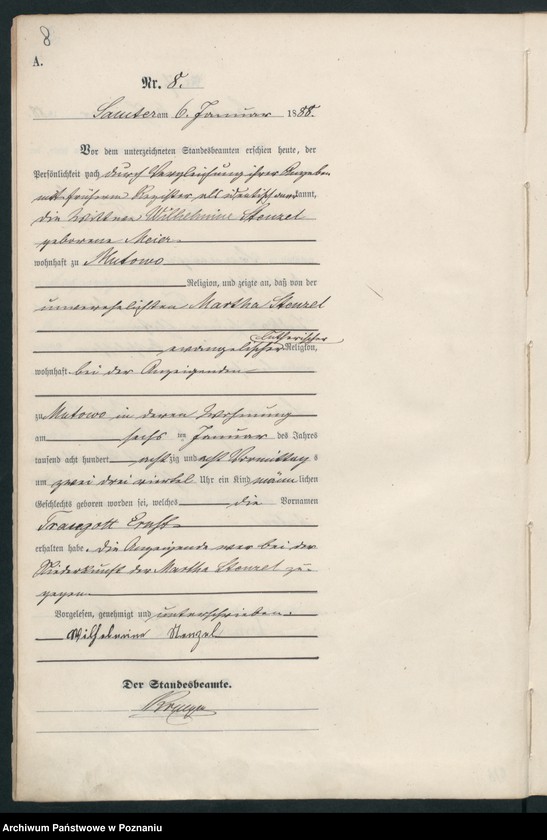 8
A.
Nr. 8.
Samter am 6. Januar 1888.
Vor dem unterzeichneten Standesbeamten erschien heute, der
Persönlichkeit nach durch Vergleichung ihrer Angaben
mit frühern Register als identisch anerkannt,
die Wittwe Wilhelmine Stenzel
geborene Meier
wohnhaft zu Mutowo
Religion, und zeigte an, daß von der
unverehelichten Martha Stenzel
lutherischer
evangelischer Religion,
wohnhaft bei der Anzeigenden
zu Mutowo in deren Wohnung
am sechs ten Januar des Jahres
tausend acht hundert acht zig und acht Vormittags
um zwei drei viertel Uhr ein Kind männlichen
Geschlechts geboren worden sei, welches die Vornamen
Traugott Ernst
erhalten habe. Die Anzeigende war bei der
Niederkunft der Martha Stenzel zu-
gegen.
Vorgelesen, genehmigt und unterschrieben.
Wilhelmine Stenzel
Der Standesbeamte.
Archiwum Państwowe w Poznaniu